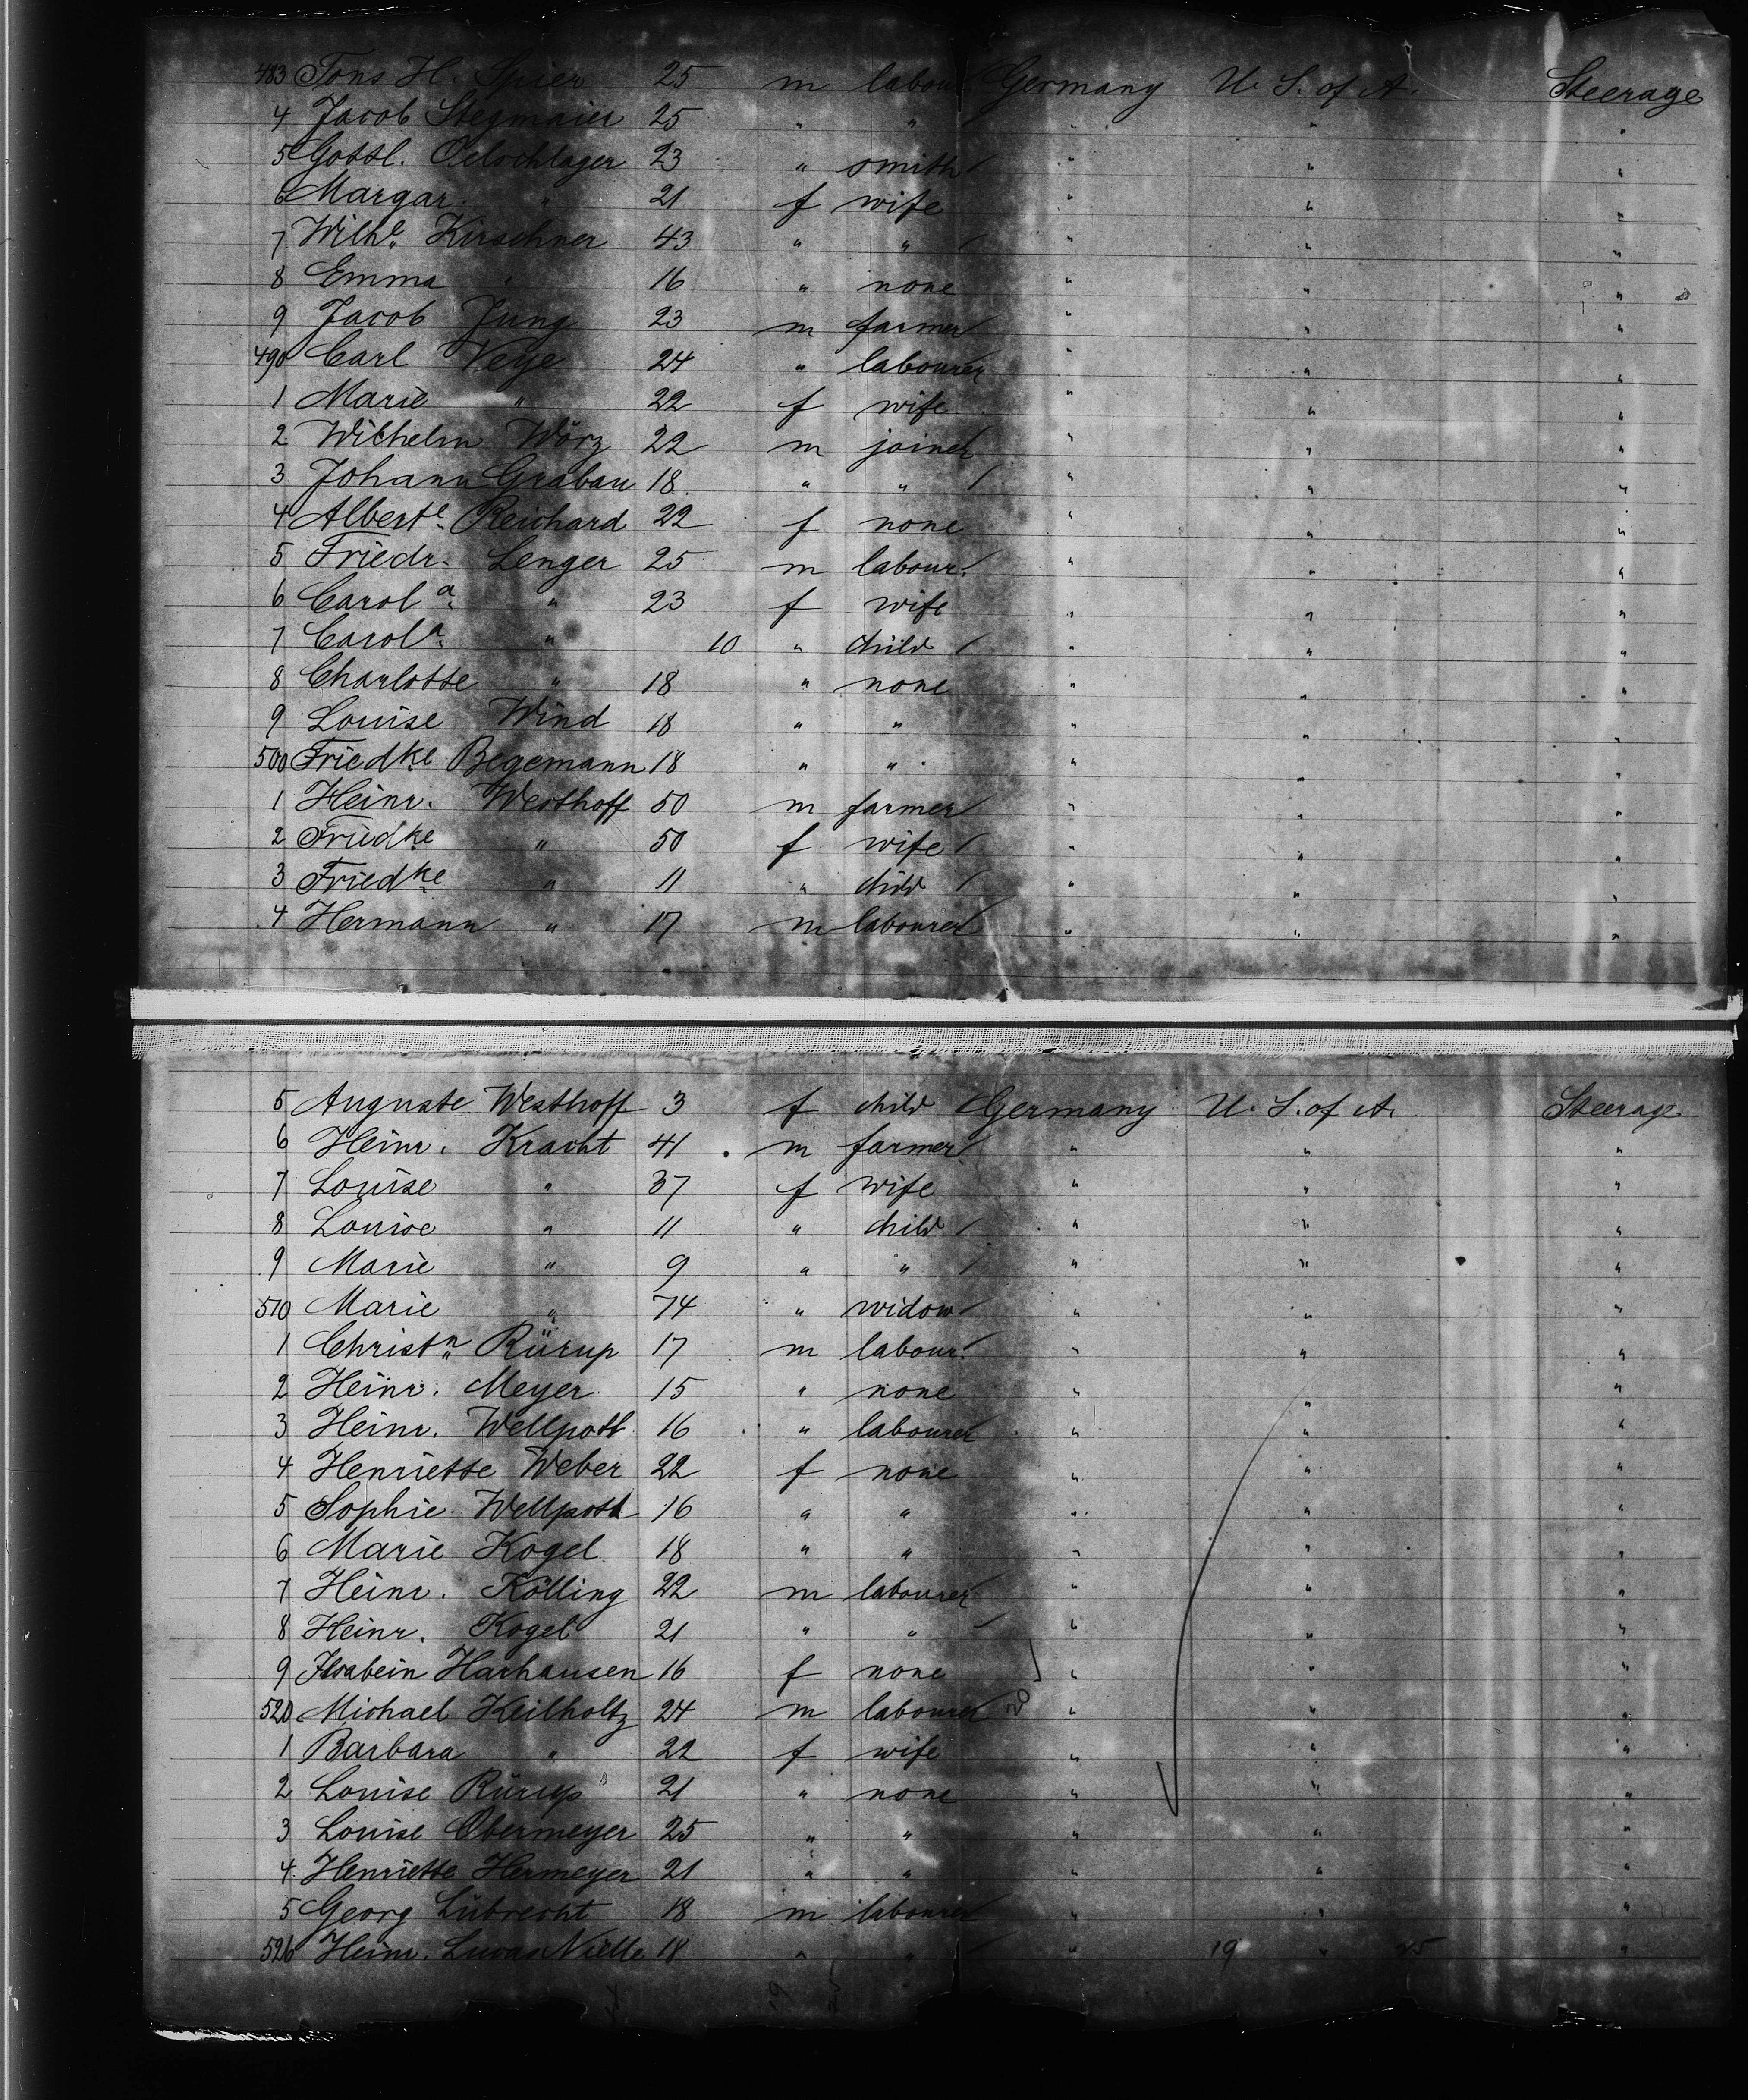 483 Tons H. Spier 25 m labour. Germany U. S. of A. Steerage
4 Jacob Stegmaier 25 " " " " "
5 Gottl. Oelschlager 23 " smith " " "
6 Margar. " 21 f wife " " "
7 Wilhe. Kirschner 43 " " " " "
8 Emma " 16 " none " " "
9 Jacob Jung 23 m farmer " " "
490 Carl Vege 24 " labourer " " "
1 Marie " 22 f wife " " "
2 Wilhelm Wörz 22 m joiner " " "
3 Johann Grabau 18 " " " " "
4 Alberte. Reichard 22 f none " " "
5 Friedr. Lenger 25 m labour. " " "
6 Carola. " 23 f wife " " "
7 Carola. " 10 " child " " "
8 Charlotte " 18 " none " " "
9 Louise Wind 18 " " " " "
500 Friedke Begemann 18 " " " " "
1 Heinr. Westhoff 50 m farmer " " "
2 Friedke " 50 f wife " " "
3 Friedke " 11 " child " " "
4 Hermann " 17 m labourer " " "
5 Auguste Westhoff 3 f child Germany U. S. of A. Steerage
6 Heinr. Kracht 41 m farmer " " "
7 Louise " 37 f wife " " "
8 Louise " 11 " child " " "
9 Marie " 9 " " " " "
510 Marie " 74 " widow " " "
1 Christn Rürup 17 m labour. " " "
2 Heinr. Meyer 15 " none " " "
3 Heinr. Wellpott 16 " labourer " " "
4 Henriette Weber 22 f none " " "
5 Sophie Wellpott 16 " " " " "
6 Marie Kogel 18 " " " " "
7 Heinr. Kölling 22 m labourer " " "
8 Heinr. Kogel 21 " " " " "
9 Ilsabein Harhausen 16 f none " " "
520 Michael Keilholtz 24 m labourer 20 " " "
1 Barbara " 22 f wife " " "
2 Louise Rürup 21 " none " " "
3 Louise Obermeyer 25 " " " " "
4 Henriette Hermeyer 21 " " " " "
5 Georg Lübrecht 18 m labourer " " "
526 Heinr. Lucas 18 " " " 19 " 25 "
19